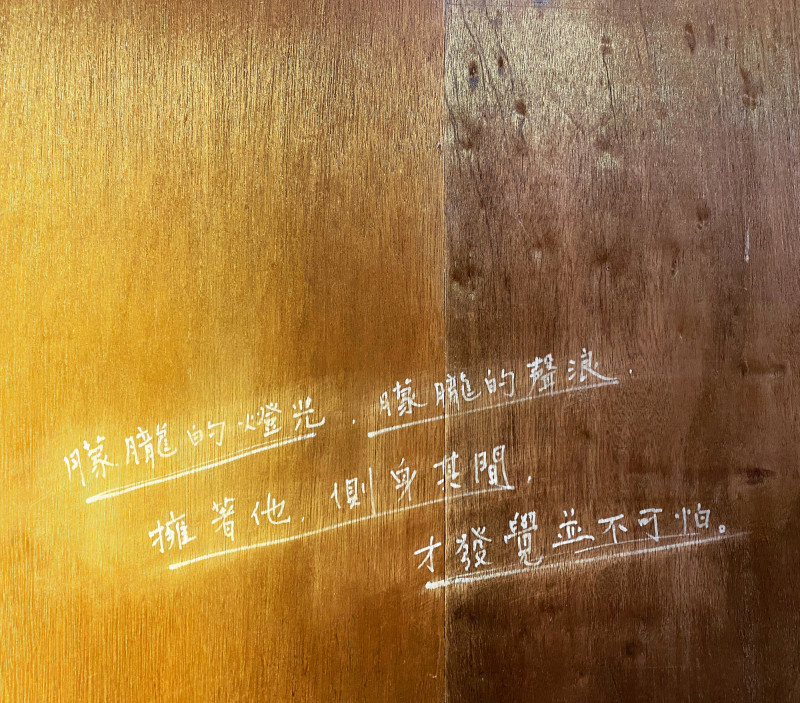 朦朧的燈光，朦朧的聲浪，
擁著他，側身其間，
才發覺並不可怕。